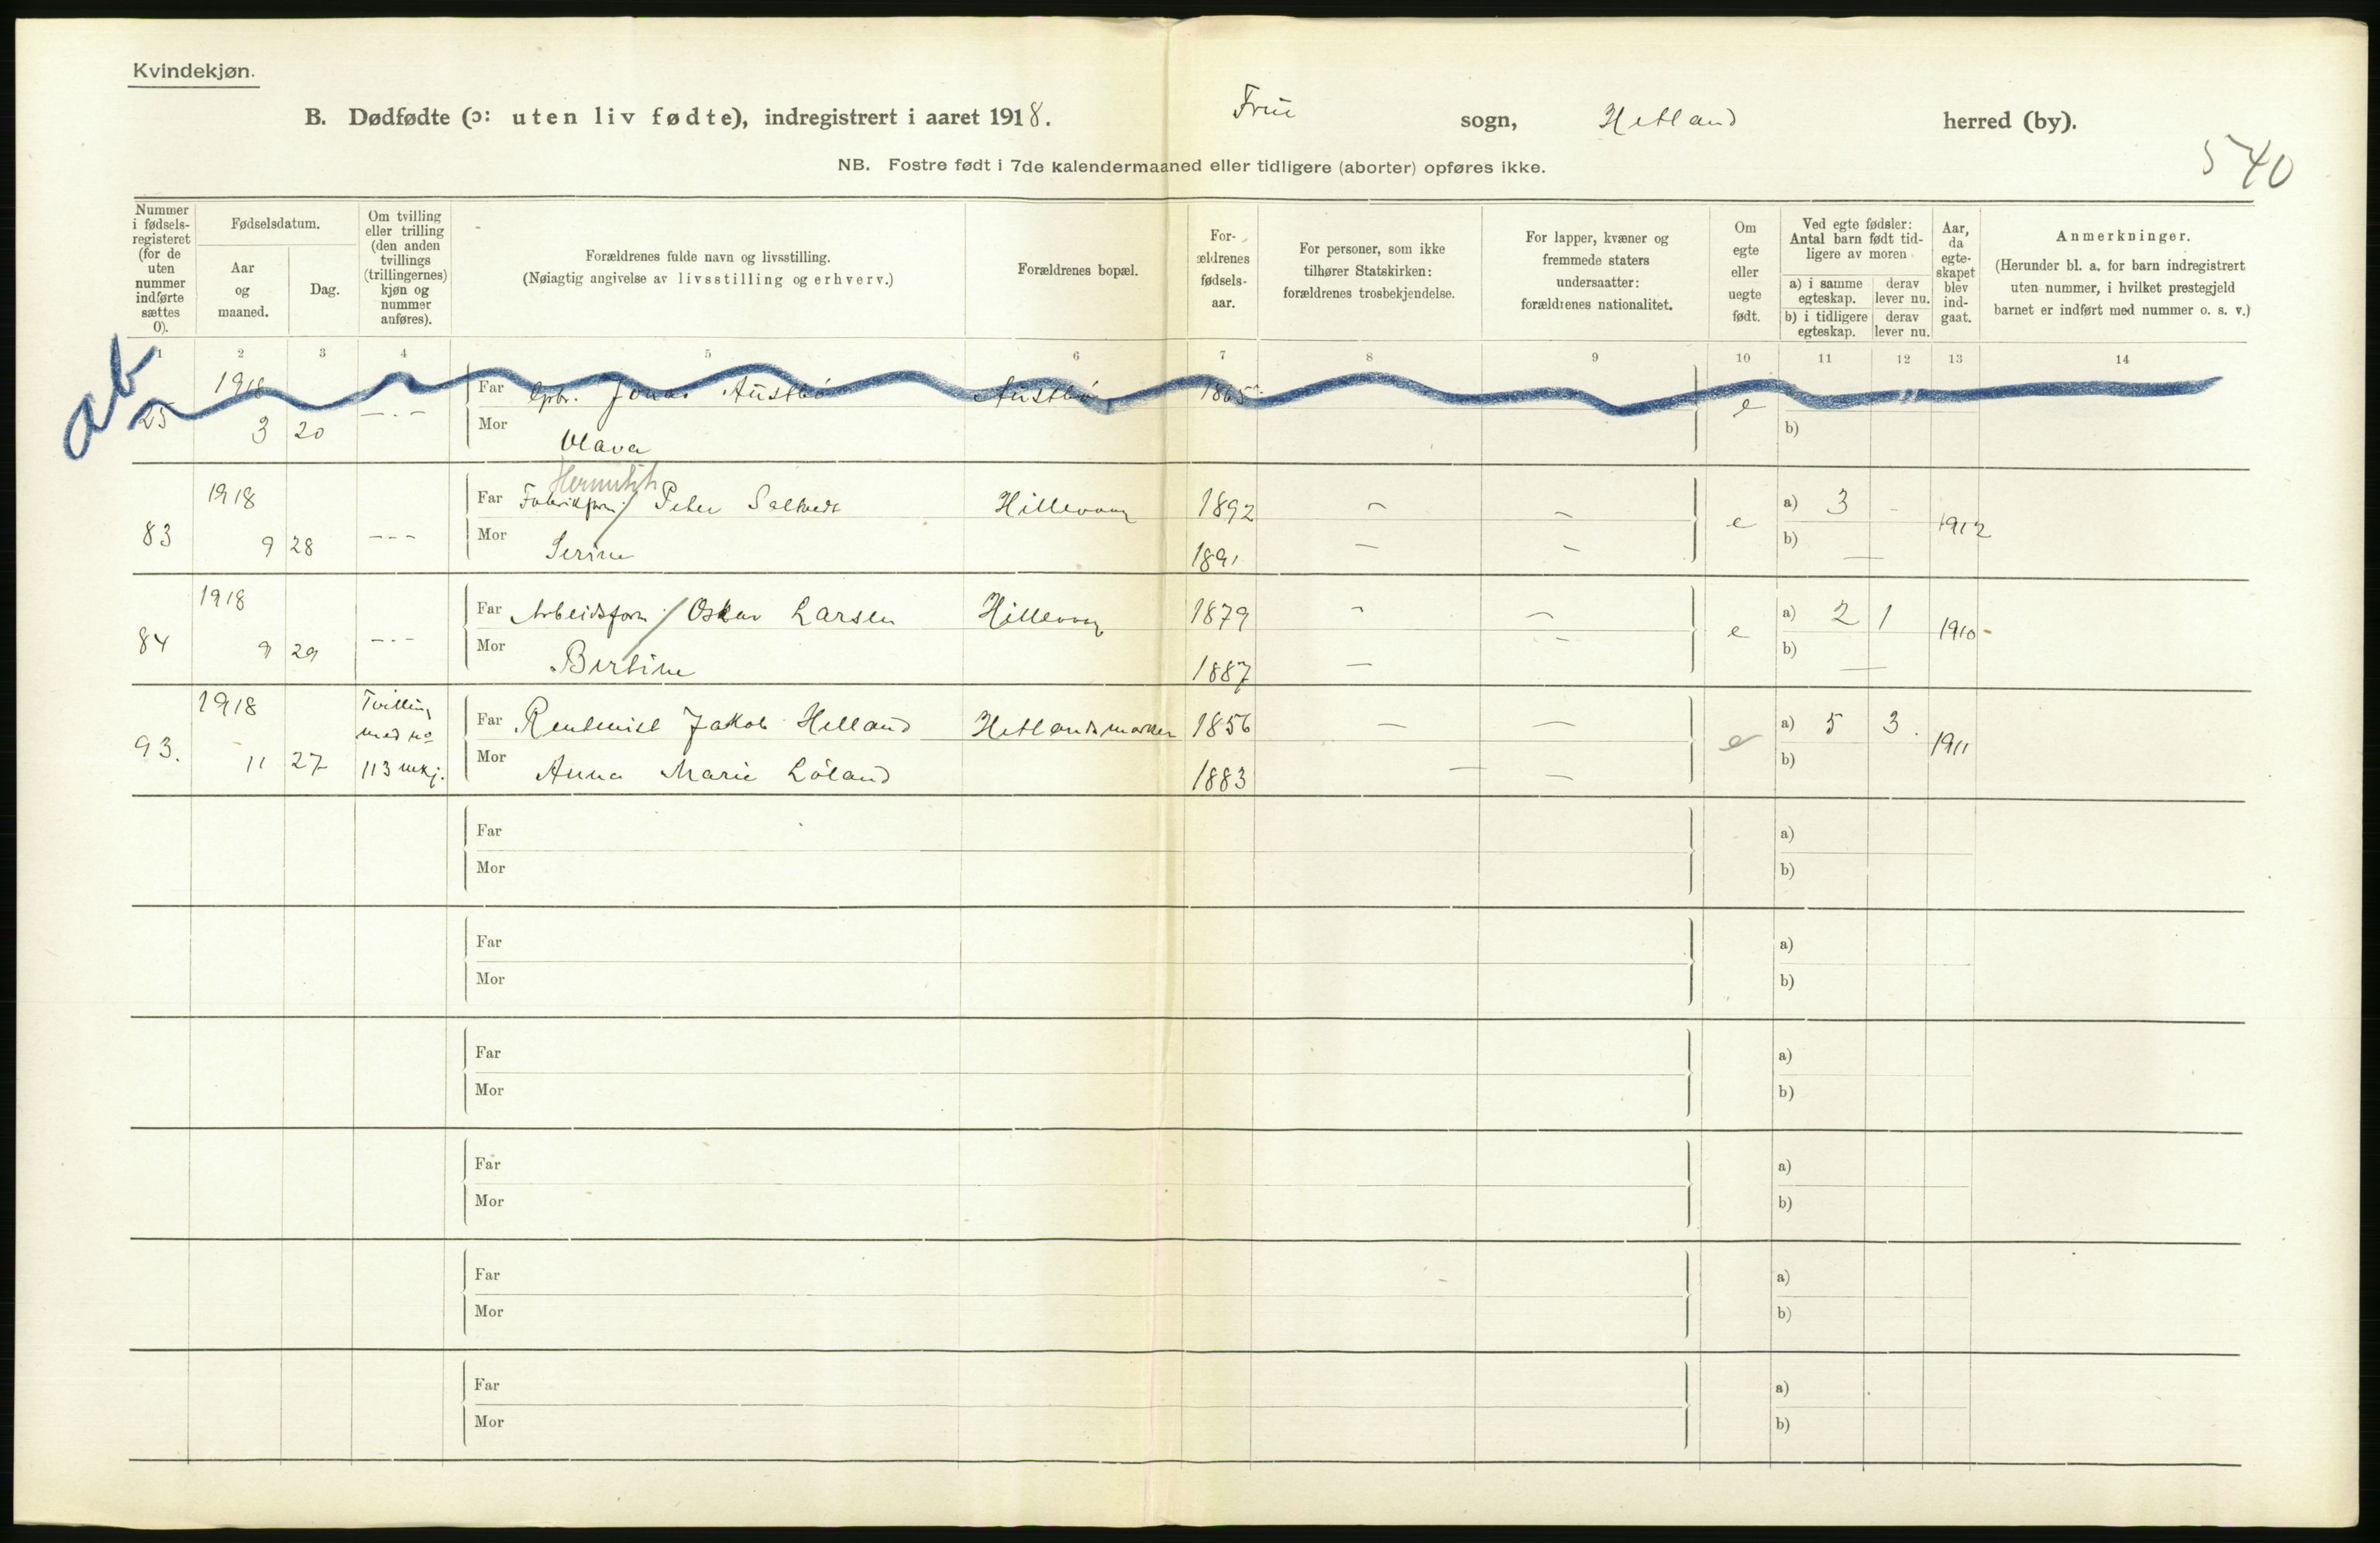 Kvindekjøn.
B. Dødfødte (ɔ: uten liv fødte), indregistrert i aaret 1918. Frue sogn, Hetland herred (by).
540
NB. Fostre født i 7de kalendermaaned eller tidligere (aborter) opføres ikke.
Nummer i fødsels-registeret (for de uten nummer indførte sættes 0).
Fødselsdatum.
Aar og maaned.
Dag.
Om tvilling eller trilling (den anden tvillings (trillingernes) kjøn og nummer anføres).
Forældrenes fulde navn og livsstilling.
(Nøiagtig angivelse av livsstilling og erhverv.)
Forældrenes bopæl.
For-ældrenes fødsels-aar.
For personer, som ikke tilhører Statskirken: forældrenes trosbekjendelse.
For lapper, kvæner og fremmede staters undersaatter: forældrenes nationalitet.
Om egte eller uegte født.
Ved egte fødsler: Antal barn født tid-ligere av moren
a) i samme egteskap.
derav lever nu.
b) i tidligere egteskap.
derav lever nu.
Aar, da egte-skapet blev ind-gaat.
Anmerkninger.
(Herunder bl. a. for barn indregistrert uten nummer, i hvilket prestegjeld barnet er indført med nummer o. s. v.)
1 2 3 4 5 6 7 8 9 10 11 12 13 14
ab
25 1918 3 20 — . —
Far Gbr. Jonas Austbø Austbø 1865
Mor Olava
e
b)
83 1918 9 28 – – –
Far Peder Salkvedt Hillevaag 1892 – –
Mor Serine 1891 – –
e a) 3 - 1912
b) —
84 1918 9 29 – . –
Far Arbeidsform / Oskar Larsen Hillevaag 1879 – –
Mor Bertine 1887 – –
e a) 2 1 1910
b) —
93. 1918 11 27 Tvilling med no 113 mkj.
Far Rentenist Jakob Helland Hetlandsmarken 1856 – –
Mor Anna Marie Løland 1883 – –
e a) 5 3. 1911
b)
Far a)
Mor b)
Far a)
Mor b)
Far a)
Mor b)
Far a)
Mor b)
Far a)
Mor b)
Far a)
Mor b)